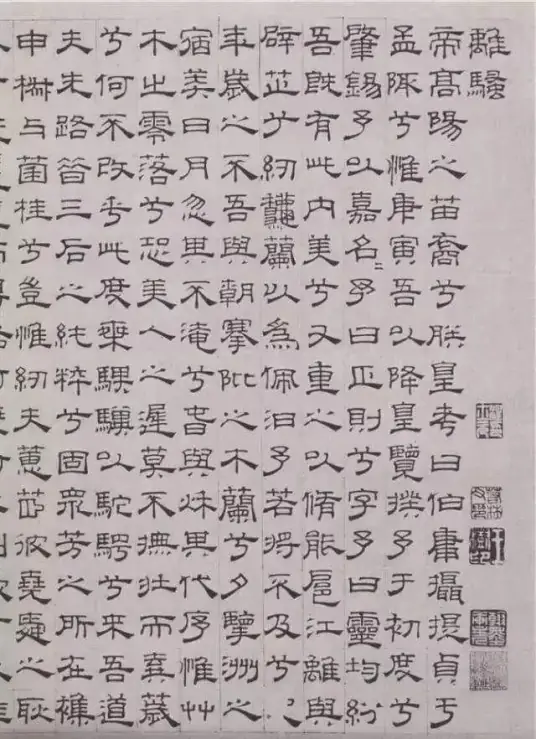 離騷
帝高陽之苗裔兮朕皇考曰伯庸攝提貞于
孟陬兮惟庚寅吾以降皇覽揆予于初度兮
肇錫予以嘉名予曰正則兮字予曰靈均紛
吾既有此内美兮又重之以脩能扈江離與
辟芷兮紉龝蘭以為佩汨予若將不及兮
年歲之不吾與朝搴阰之木蘭兮夕擥洲之
宿莽日月忽其不淹兮春與秌其代序惟艸
木之零落兮恐美人之遲莫不撫壯而棄薉
兮何不改乎此度椉騏驥以馳騁兮來吾道
夫先路昔三后之純粹兮固衆芳之所在襍
申椒与菌桂兮豈惟紉夫蕙茝彼堯舜之耿